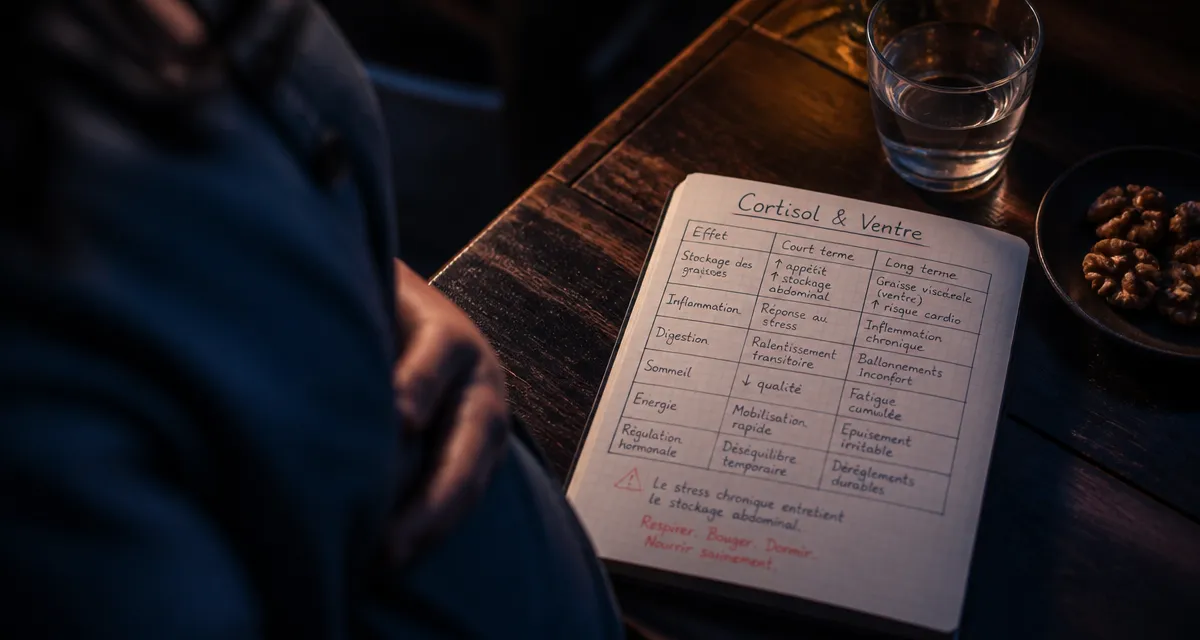 Cortisol & Ventre
Effet
Court terme
Long terme
Stockage des
graisses
↑ appétit
↑ stockage
abdominal
Graisse viscérale
(ventre)
↑ risque cardio
Inflammation
Réponse au
stress
Inflammation
chronique
Digestion
Ralentissement
transitoire
Ballonnements
Inconfort
Sommeil
↓ qualité
Fatigue
cumulée
Energie
Mobilisation
rapide
Epuisement
irritable
Régulation
hormonale
Déséquilibre
temporaire
Déréglements
durables
Le stress chronique entretient
le stockage abdominal.
Respirer. Bouger. Dormir.
Nourrir sainement.